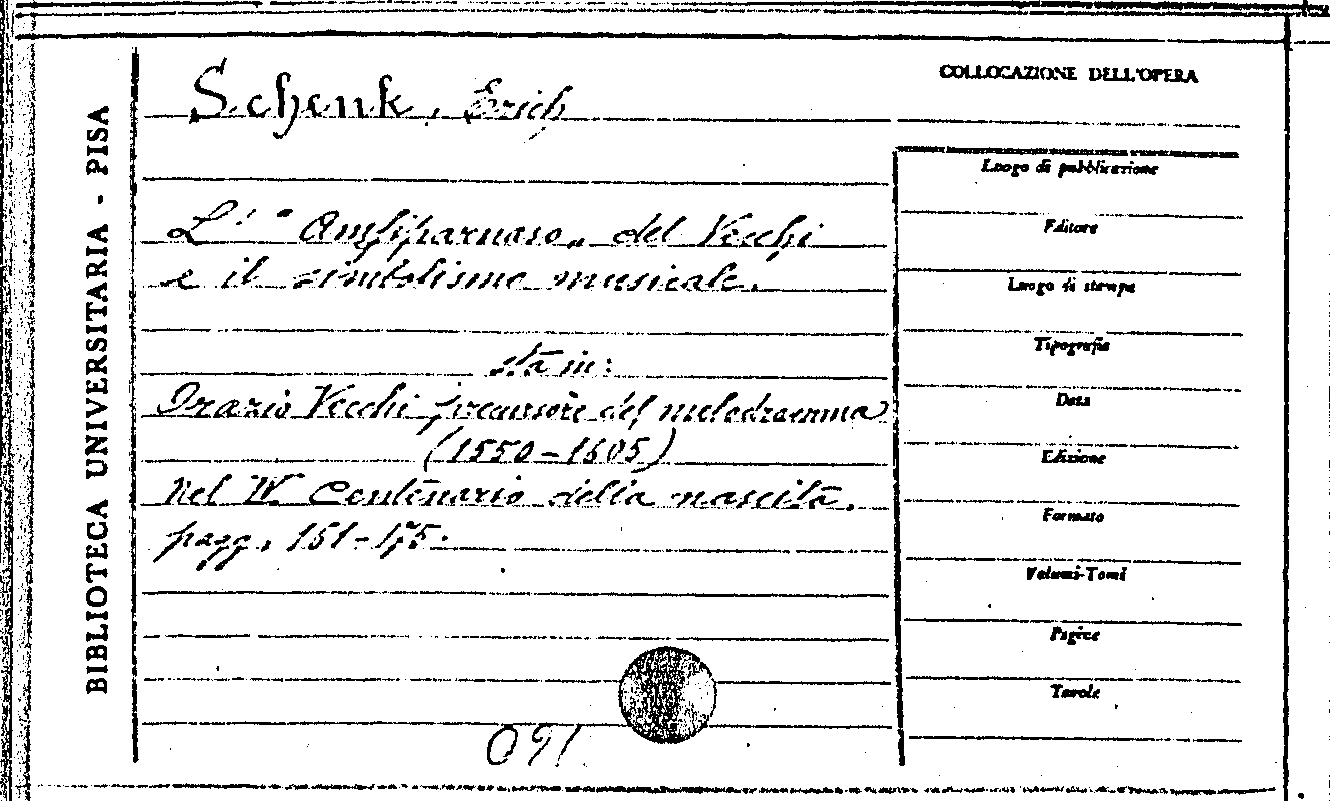 BIBLIOTECA UNIVERSITARIA - PISA
Schenk, Erich
L' "Amfiparnaso" del Vecchi
e il simbolismo musicale.
sta in:
Orazio Vecchi precursore del melodramma
(1550-1605)
Nel IV Centenario della nascita.
pagg. 151-175.
091
COLLOCAZIONE DELL'OPERA
Luogo di pubblicazione
Editore
Luogo di stampa
Tipografia
Data
Edizione
Formato
Volumi-Tomi
Pagine
Tavole